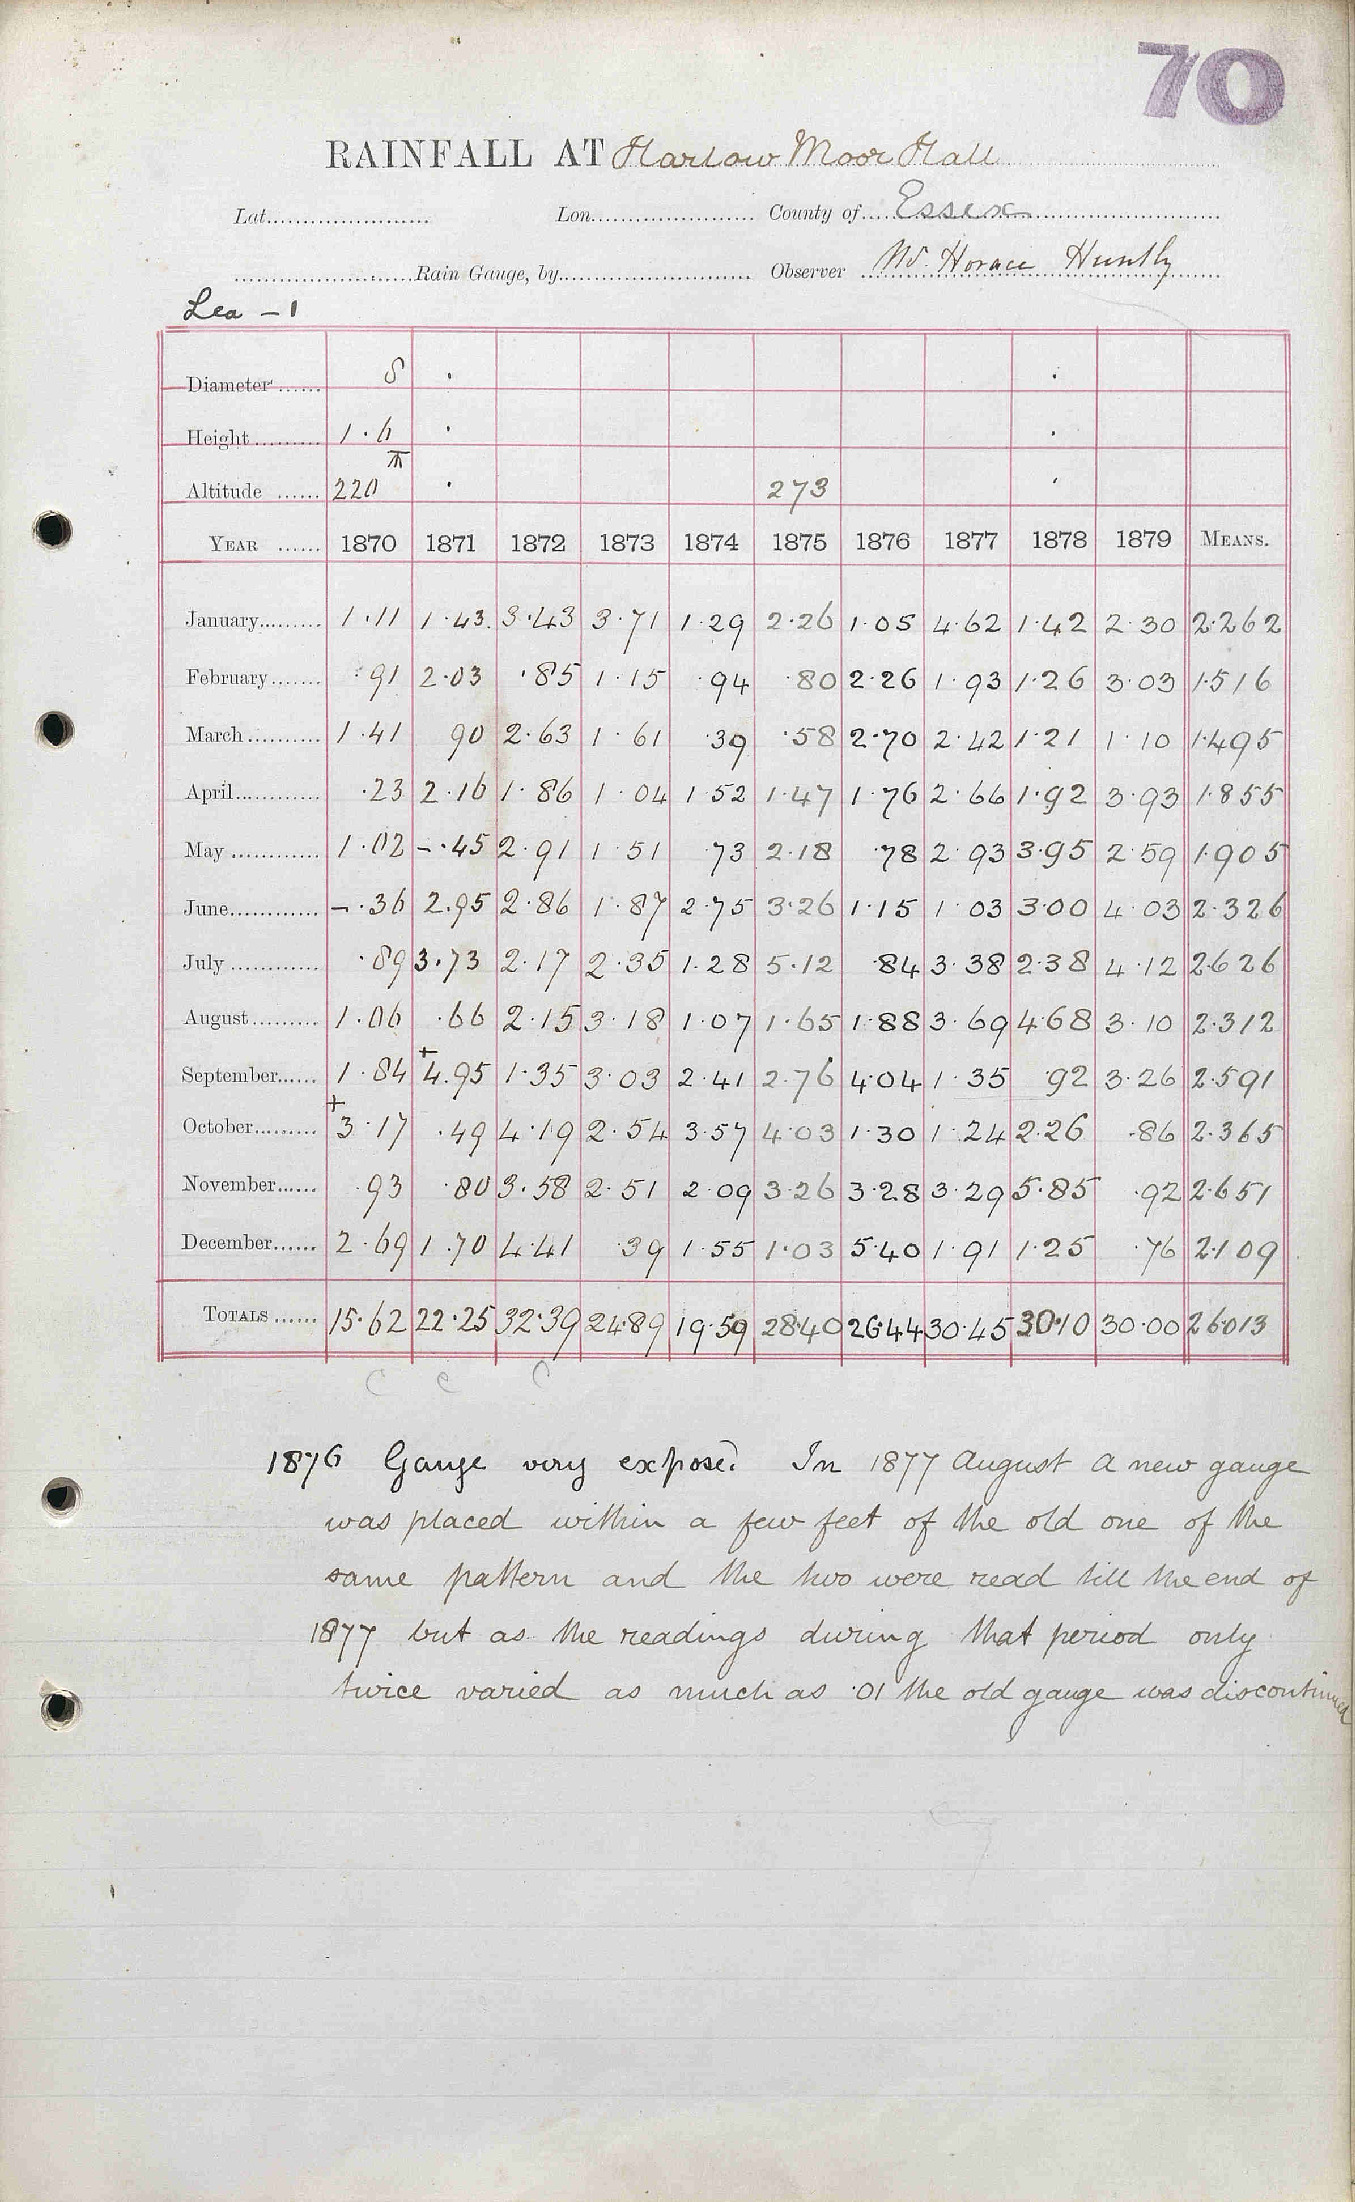 70
RAINFALL AT Harlow Moor Hall
Lat. Lon. County of Essex
Rain Gauge, by Observer Mr. Horace Huntly
Lea - 1
Diameter 8
Height 1.6
Altitude 220 273
YEAR 1870 1871 1872 1873 1874 1875 1876 1877 1878 1879 MEANS.
January 1.11 1.43 3.43 3.71 1.29 2.26 1.05 4.62 1.42 2.30 2.262
February .91 2.03 .85 1.15 .94 .80 2.26 1.93 1.26 3.03 1.516
March 1.41 90 2.63 1.61 .39 .58 2.70 2.42 1.21 1.10 1.495
April .23 2.16 1.86 1.04 1.52 1.47 1.76 2.66 1.92 3.93 1.855
May 1.02 -.45 2.91 1.51 .73 2.18 .78 2.93 3.95 2.59 1.905
June -.36 2.95 2.86 1.87 2.75 3.26 1.15 1.03 3.00 4.03 2.326
July .89 3.73 2.17 2.35 1.28 5.12 .84 3.38 2.38 4.12 2.626
August 1.06 .66 2.15 3.18 1.07 1.65 1.88 3.69 4.68 3.10 2.312
September 1.84 +4.95 1.35 3.03 2.41 2.76 4.04 1.35 .92 3.26 2.591
October +3.17 .49 4.19 2.54 3.57 4.03 1.30 1.24 2.26 .86 2.365
November .93 .80 3.58 2.51 2.09 3.26 3.28 3.29 5.85 .92 2.651
December 2.69 1.70 4.41 .39 1.55 1.03 5.40 1.91 1.25 .76 2.109
TOTALS 15.62 22.25 32.39 24.89 19.59 28.40 26.44 30.45 30.10 30.00 26.013
C C C
1876 Gauge very exposed. In 1877 August a new gauge
was placed within a few feet of the old one of the
same pattern and the two were read till the end of
1877 but as the readings during that period only
twice varied as much as .01 the old gauge was discontinued